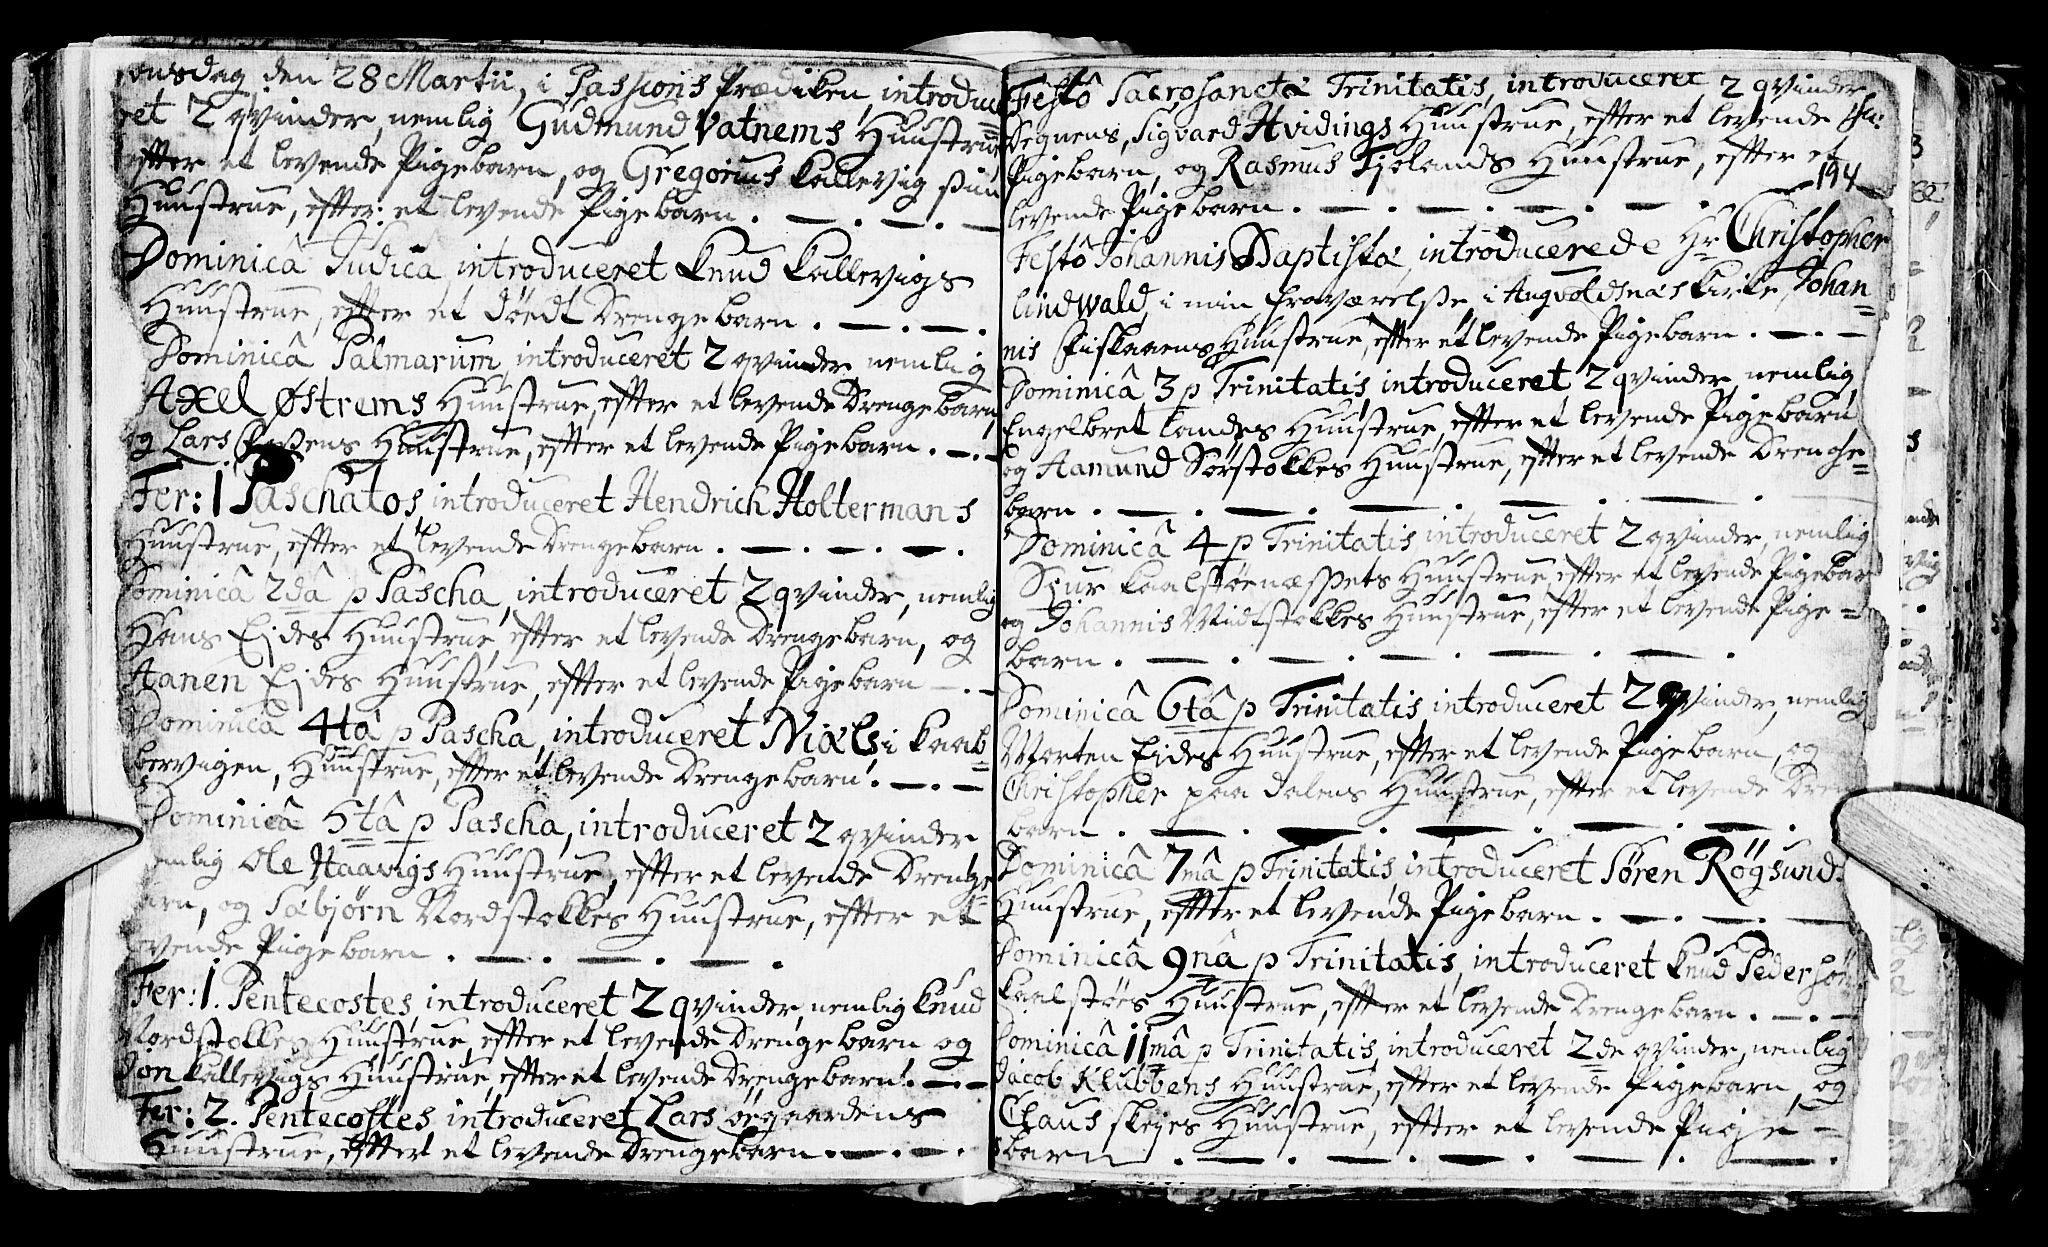 onsdag, den 28 Martii, i Passions Prædiken, introduce
ret 2 qvinder, nemlig Gudmund Vatnems Huustrue
efter et levende Pigebarn, og Gregorius Kallevig
Huustrue, efter et levende Pigebarn. —. —. —. —
Dominicâ Judica, introduceret Knud Kallevigs
Huustrue, efter et döedt Drengebarn. —. —.
Dominicâ Palmarum, introduceret 2 qvinder, nemlig
Axel Østrems Huustrue, efter et levende Drengebarn,
og Lars Huustrue, efter et levende Pigebarn. —. —
Fer: 1 Paschatos, introduceret Hendrich Holtermans
Huustrue, efter et levende Drengebarn. —. —. —.
Dominicâ 2dâ p Pascha, introduceret 2 qvinder, nemlig
Hans Eides Huustrue, efter et levende Drengebarn, og
Aanen Eides Huustrue, efter et levende Pigebarn —. —
Dominicâ 4tâ p Pascha, introduceret Niæls i Kaab=
bervigen, Huustrue, efter et levende Drengebarn. —. —
Dominicâ 5tâ p Pascha, introduceret 2 qvinder
emlig Ole Haavigs Huustrue, efter et levende Drenge=
arn, og Sæbjörn Nordstokkes Huustrue, efter et
evende Pigebarn. —. —. —.
Fer: 1. Pentecostes, introduceret 2 qvinder, nemlig Knud
Nordstokkes Huustrue, efter et levende Drengebarn og
Jon Kallevigs Huustrue, efter et levende Drengebarn. —. —
Fer: 2. Pentecostes introduceret Lars öegaardens
Huustrue, efter et levende Drengebarn. —. —.
Festô Sacrosanctæ Trinitatis, introduceret 2 qvinder
Degnens, Sigvard Hvidings Huustrue, efter et levende
Pigebarn, og Rasmus Tjolands Huustrue, efter et
194
levende Pigebarn. —. —. —. —. —.
Festô Johannis Baptistæ, introducerede Hr Christopher
Lindwald, i min fraværelse i Augvoldsnæs Kirke, Johan=
nis Fiskaaens Huustrue, efter et levende Pigebarn. —. —
Dominicâ 3 p Trinitatis, introduceret 2 qvinder, nemlig
Engelbret Landes Huustrue, efter et levende Pigebarn
og Aamund Sörstokkes Huustrue, efter et levende Drenge=
barn. —. —. —. —. —
Dominicâ 4 p Trinitatis, introduceret 2 qvinder, nemlig
Siur Kaalstöenæssets Huustrue, efter et levende Pigebar
og Johannis Midtstokkes Huustrue, efter et levende Pige=
barn. —. —. —. —. —.
Dominicâ 6tâ p Trinitatis, introduceret 2 qvinder, nemlig
Morten Eides Huustrue, efter et levende Pigebarn, og
Christopher paa dalens Huustrue, efter et levende Dren
barn. —. —. —. —. —.
Dominicâ 7mâ p Trinitatis, introduceret Sören Rögsunds
Huustrue, efter et levende Pigebarn. —. —. —
Dominicâ 9nâ p Trinitatis, introduceret Knud Pedersön
Kaalstöes Huustrue, efter et levende Drengebarn. —. —
Dominicâ 11mâ p Trinitatis, introduceret 2de qvinder, nemlig
Jacob Klubbens Huustrue, efter et levende Pigebarn, og
Claus skejes Huustrue, efter et levende Pige=
barn. —. —. —. —. —.